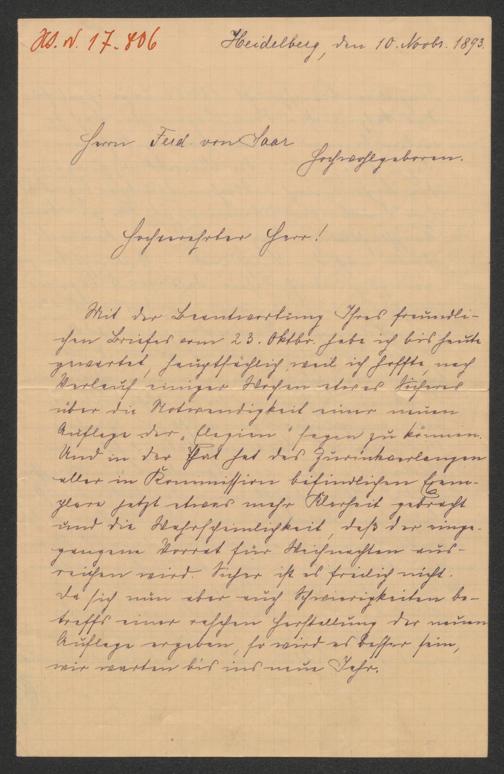 H.S. N. 17.806
Heidelberg, den 10. Novbr. 1893.
Herrn Ferd. von Saar
Hochwohlgeboren.
Hochverehrter Herr!
Mit der Beantwortung Ihres freundli-
chen Briefes vom 23. Oktbr. habe ich bis heute
gewartet, hauptsächlich weil ich hoffte, nach
Verlauf einiger Wochen etwas Sicheres
über die Notwendigkeit einer neuen
Auflage der „Elegien“ sagen zu können.
Und in der That hat das Zurückverlangen
aller in Kommission befindlichen Exem-
plare jetzt etwas mehr Klarheit gebracht
und die Wahrscheinlichkeit, daß der einge-
gangene Vorrat für Weihnachten aus-
reichen wird. Sicher ist es freilich nicht.
Da sich nun aber auch Schwierigkeiten be-
treffs einer raschen Herstellung der neuen
Auflage ergeben, so wird es besser sein,
wir warten bis ins neue Jahr.